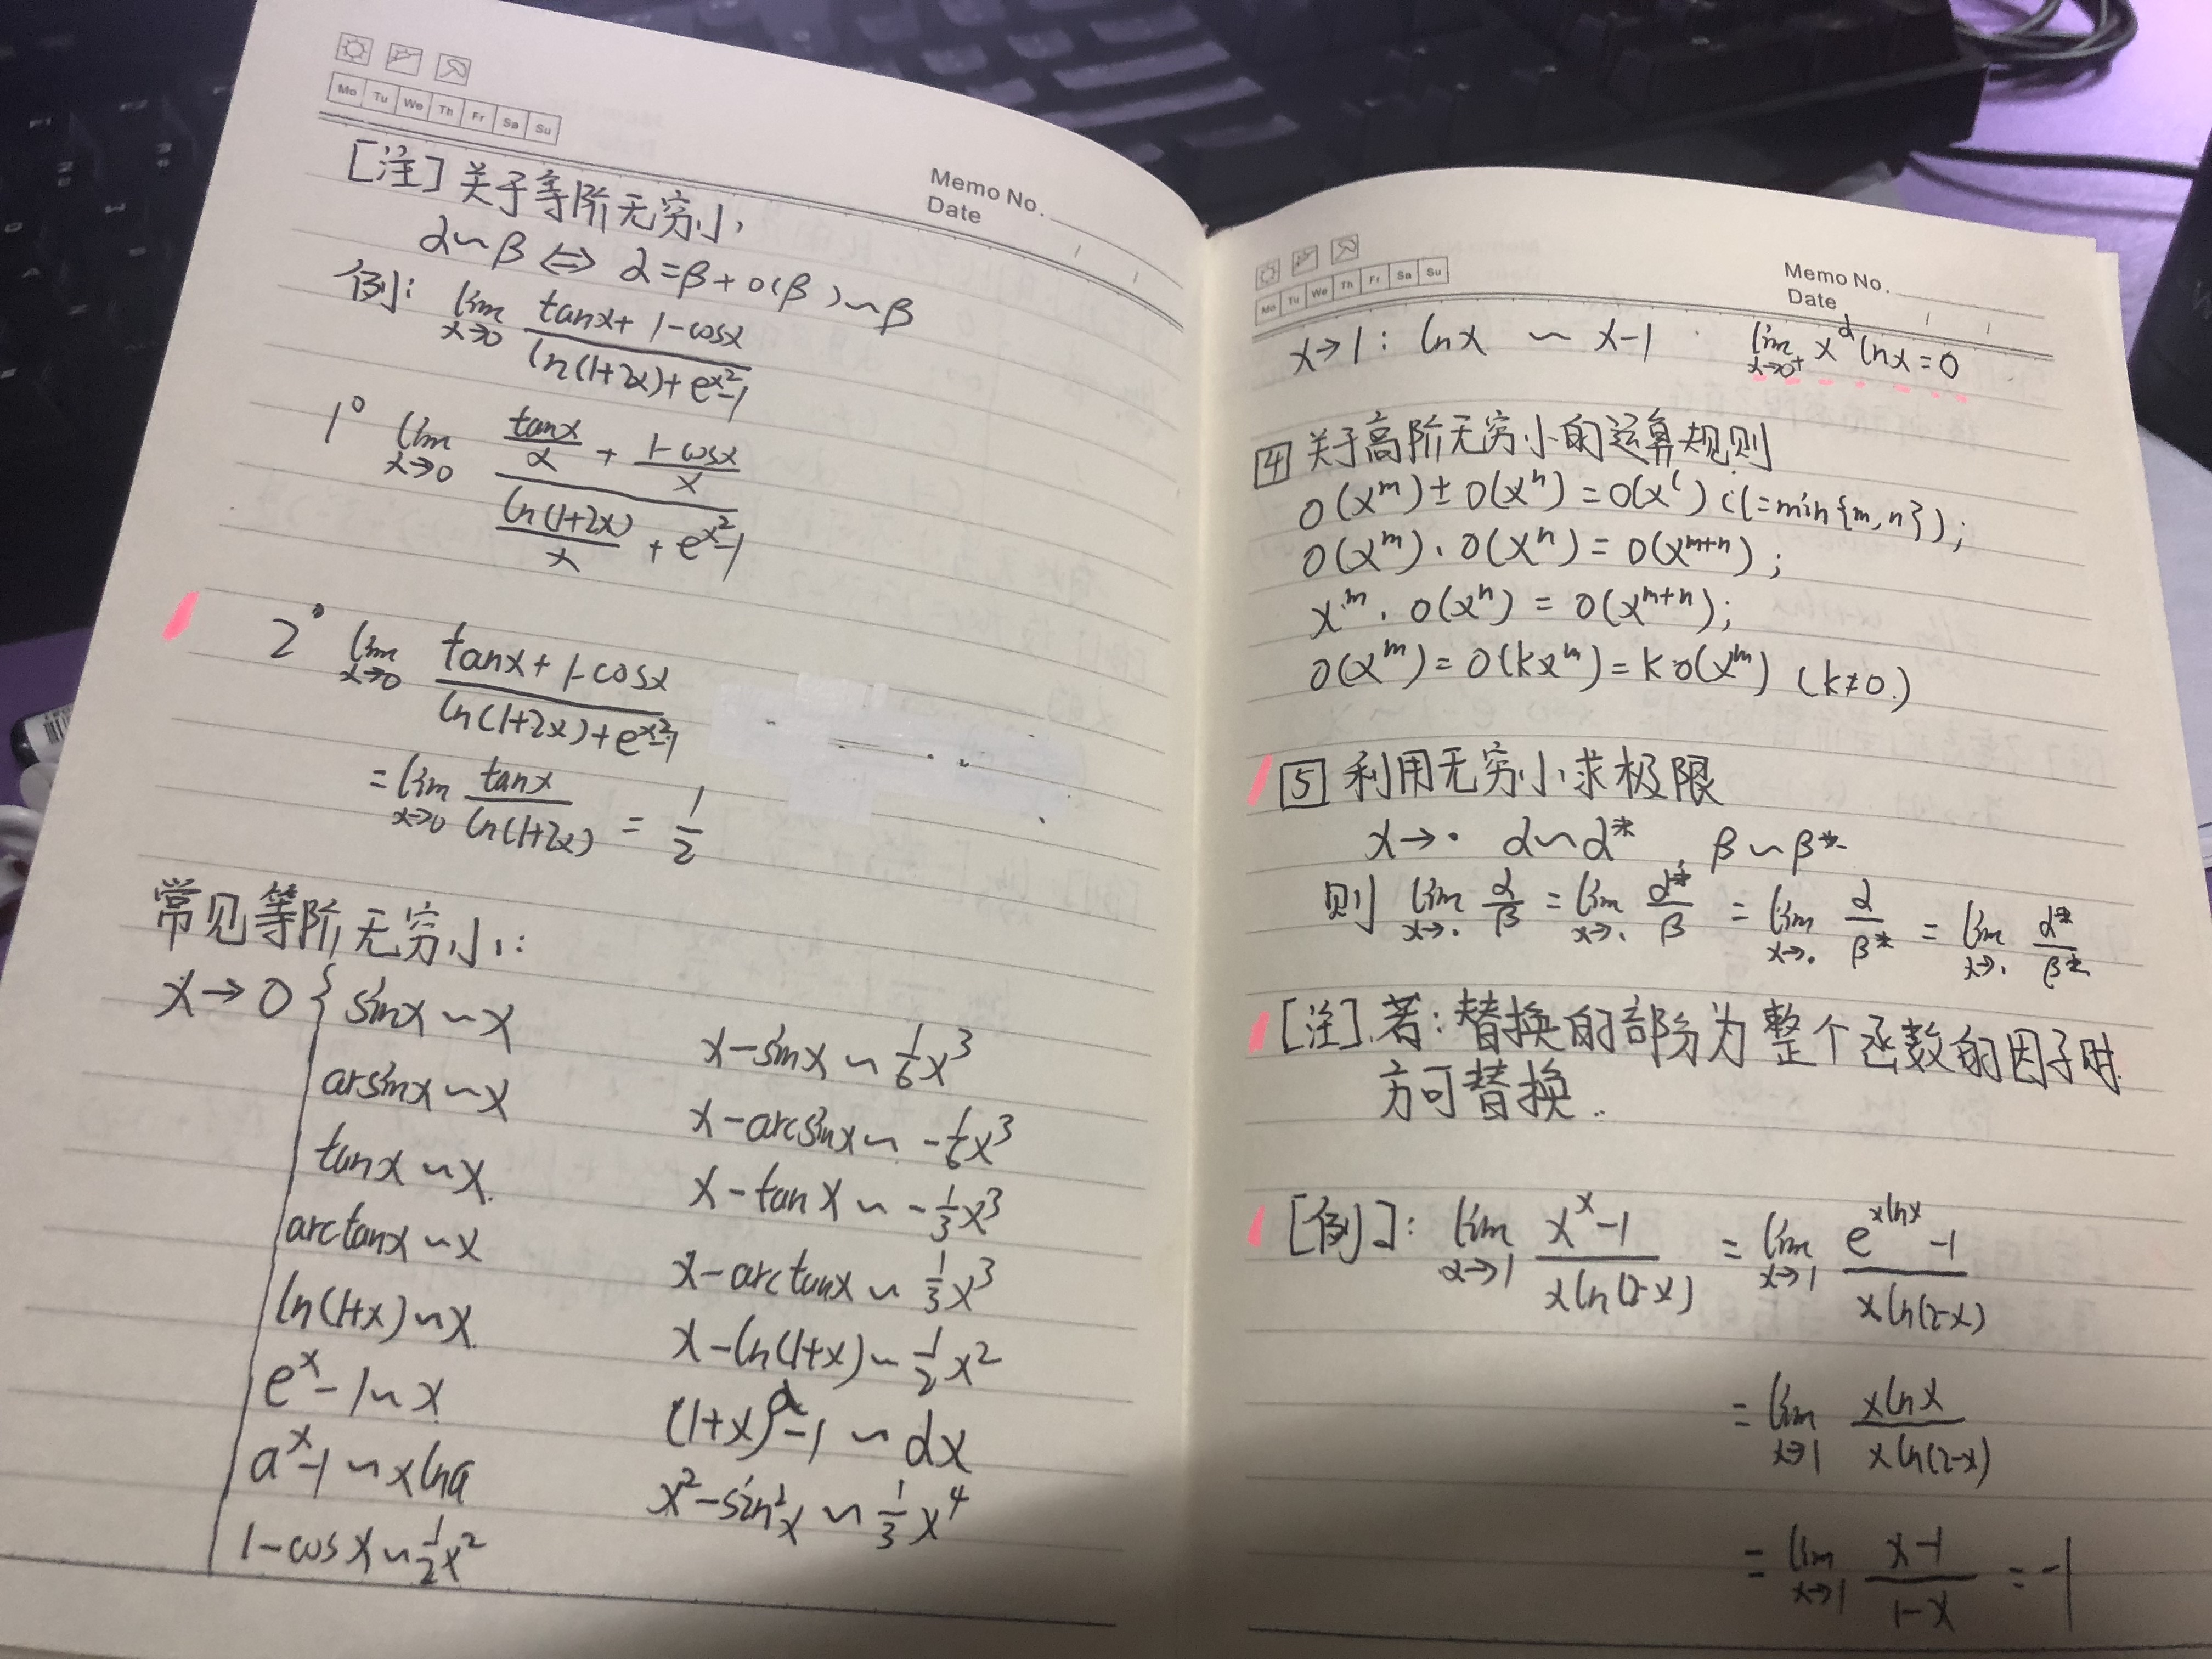 Mo Tu We Th Fr Sa Su
Memo No.
Date
[注] 关于等阶无穷小
α∽β ⇔ α=β+o(β)∽β
例: lim x→0 (tanx+1-cosx)/(ln(1+2x)+e^x²-1)
1° lim x→0 (tanx/x + (1-cosx)/x)/(ln(1+2x)/x + e^x²-1)
2° lim x→0 (tanx+1-cosx)/(ln(1+2x)+e^x²-1)
= lim x→0 tanx/ln(1+2x) = 1/2
常见等阶无穷小:
x→0 { sinx∽x x-sinx∽1/6x³
arsinx∽x x-arcsinx∽-1/6x³
tanx∽x. x-tanx∽-1/3x³
arctanx∽x x-arctanx∽1/3x³
ln(1+x)∽x x-ln(1+x)∽1/2x²
e^x-1∽x (1+x)^α-1∽αx
a^x-1∽xlna x²-sin²x∽1/3x⁴
1-cosx∽1/2x²
Mo Tu We Th Fr Sa Su
Memo No.
Date
x→1: lnx ∽ x-1 lim x→0⁺ x^α lnx=0
[4] 关于高阶无穷小的运算规则
o(x^m)±o(x^n)=o(x^l) (l=min{m,n});
o(x^m)·o(x^n)=o(x^m+n);
x^m·o(x^n)=o(x^m+n);
o(x^m)=o(kx^m)=k·o(x^m) (k≠0.)
[5] 利用无穷小求极限
x→· α∽α*, β∽β*
则 lim x→· α/β = lim x→· α*/β = lim x→· α/β* = lim x→· α*/β*
[注].若:替换的部份为整个函数的因子时.
方可替换..
[例]: lim x→1 (x^x-1)/(xln(2-x)) = lim x→1 (e^xlnx-1)/(xln(2-x))
= lim x→1 xlnx/(xln(2-x))
= lim x→1 (x-1)/(1-x) = -1